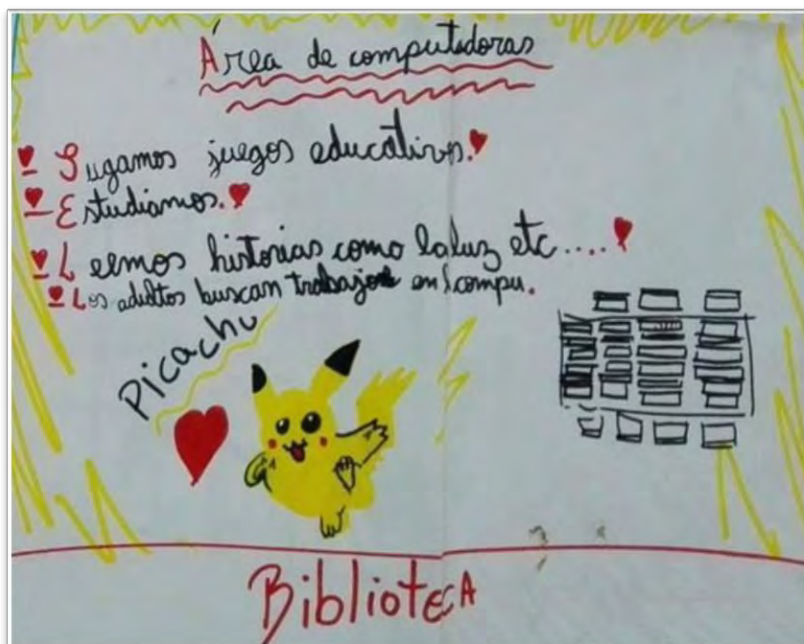 Área de computadoras
- Jugamos juegos educativos.
- Estudiamos.
- Leemos historias como la luz etc....
- Los adultos buscan trabajo en compu.
Picachu
Biblioteca